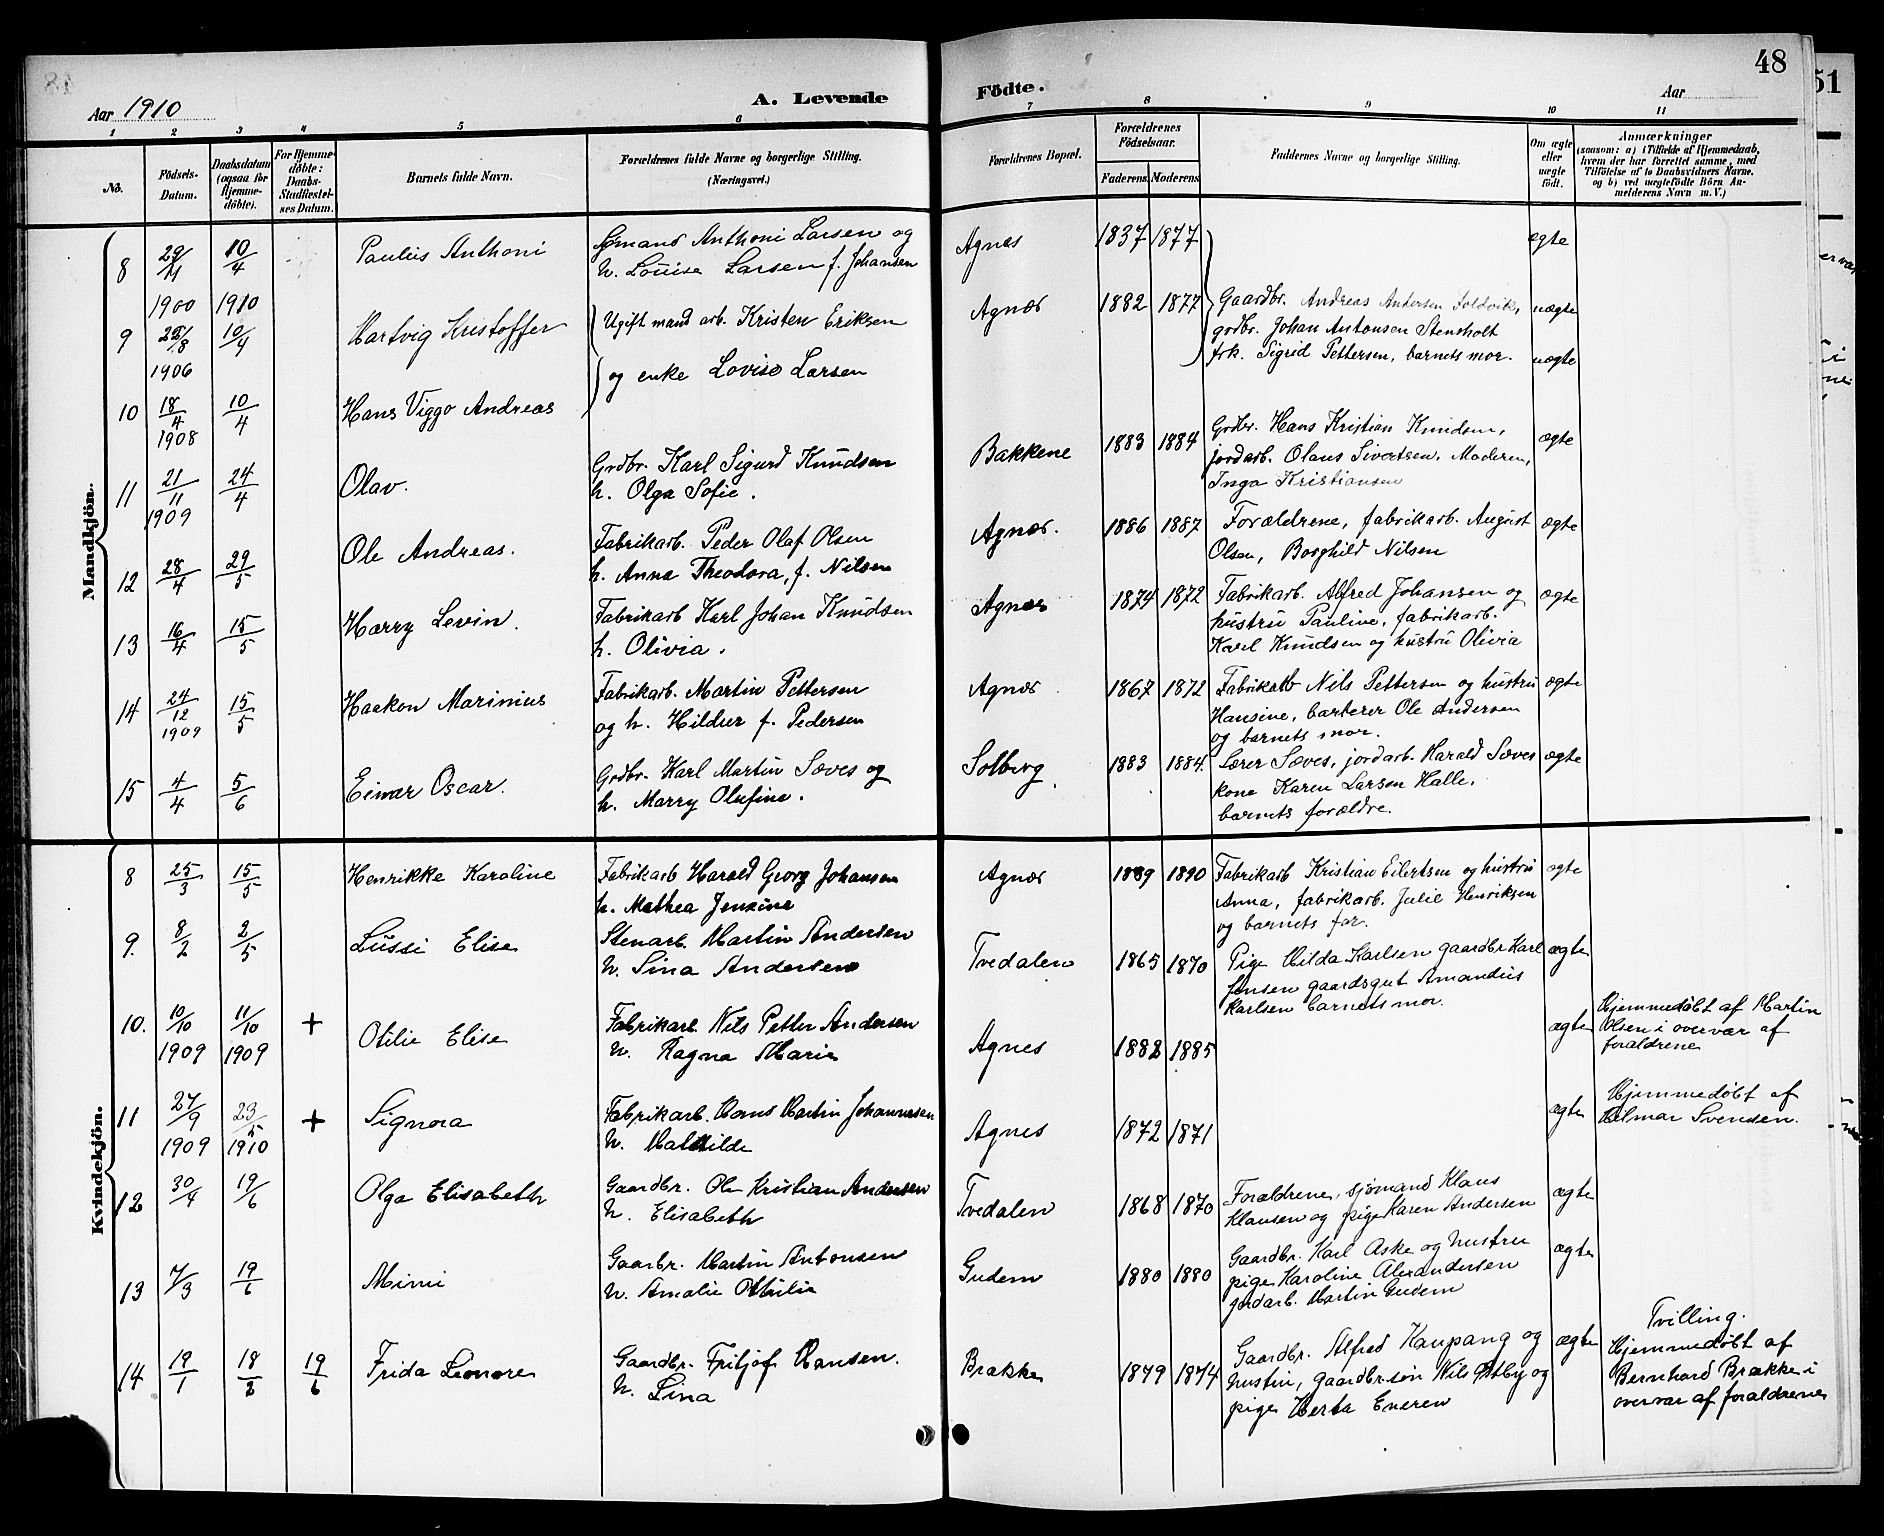 48
51
Aar 1910
A. Levende
Födte.
Aar
1 2 3 4 5 6 7 8 9 10 11
No.
Födsels-
Datum.
Daabsdatum
(ogsaa for
Hjemme-
döbte).
For Hjemme-
döbte:
Daabs-
Stadfæstel-
ses Datum.
Barnets fulde Navn.
Forældrenes fulde Navne og borgerlige Stilling.
(Næringsvei.)
Forældrenes Bopæl.
Forældrenes
Födselsaar.
Faderens. Moderens.
Faddernes Navne og borgerlige Stilling.
Om ægte
eller
uægte
født.
Anmærkninger
(saasom: a) i Tilfælde af Hjemmedaab,
hvem der har forrettet samme, med
Tilföielse af to Daabsvidners Navne,
og b) ved uægtefödte Börn An-
melderens Navn m. V.)
Mandkjön.
8 29/11 1900 10/4 1910 Paulus Anthoni
Sømand Anthoni Larsen og
h. Louise Larsen f. Johansen
Agnes 1837 1877 ægte
9 22/8 1906 10/4 Hartvig Kristoffer
Ugift mand arb. Kristen Eriksen
og enke Lovise Larsen
Agnæs 1882 1877
Gaardbr. Andreas Andersen Foldvik,
grdbr. Johan Antonsen Stensholt
frk. Sigrid Pettersen, barnets mor.
uægte
10 18/4 1908 10/4 Hans Viggo Andreas
uægte
11 21/11 1909 24/4 Olav.
Grdbr. Karl Sigurd Knudsen
h. Olga Sofie.
Bakkene 1883 1884
Grdbr. Hans Kristian Knudsen,
jordarb. Olaus Sivertsen, Moderen,
Inga Kristiansen
ægte
12 28/4 29/5 Ole Andreas.
Fabrikarb. Peder Olaf Olsen
h. Anna Theodora, f. Nilsen
Agnæs. 1886 1887
Forældrene, fabrikarb. August
Olsen, Borghild Nilsen
ægte
13 16/4 15/5 Harry Levin.
Fabrikarb Karl Johan Knudsen
h. Olivia.
Agnæs 1874 1872
Fabrikarb. Alfred Johansen og
hustru Pauline, fabrikarb.
Karl Knudsen og hustru Olivia
ægte
14 24/12 1909 15/5 Haakon Marinius
Fabrikarb. Martin Pettersen
og h. Hildur f. Pedersen
Agnæs 1867 1872
Fabrikatb Nils Pettersen og hustru
Hansine, barterer Ole Andersen
og barnets mor.
ægte
15 4/4 5/6 Einar Oscar.
Grdbr. Karl Martin Sæves og
h. Marry Olufine.
Solberg. 1883 1884.
Lærer Sæves, jordarb. Harald Sæves
kone Karen Larsen Halle,
barnets forældre.
ægte
Kvindekjön.
8 25/3 15/5 Henrikke Karoline
Fabrikarb Harald Georg Johansen
h. Mathea Jensine
Agnæs 1889 1890
Fabrikarb Kristian Eilertsen og hustru
Anna, fabrikarb. Julie Henriksen
og barnets far.
ægte
9. 8/2 2/5 Lussi Elise
Stenarb. Martin Andersen
h. Lina Andersen
Tvedalen 1865 1870
Pige Hilda Karlsen gaardbr Karl
Jensen gaardsgut Amandus
Karlsen barnets mor.
ægte
10. 10/10 1909 11/10 1909 + Otilie Elise
Fabrikarb Nils Petter Andersen
h. Ragna Marie
Agnes 1882 1885 ægte
Hjemmedøbt af Martin
Olsen i overvær af
forældrene
11 27/9 1909 23/5 1910 + Signora
Fabrikarb. Hans Martin Johannesen
h. Mathilde
Agnes 1872 1871 ægte
Hjemmedøbt af
Hilmar Svensen.
12 30/4 19/6 Olga Elisabeth
Gaardbr. Ole Kristian Andersen
h. Elisabeth
Tvedalen 1868 1870
Forældrene, sjømand Klaus
Klausen og pige Karen Andersen
ægte
13 7/3 19/6 Mimi
Gaarbr. Martin Antonsen
h. Amalie Othilie
Gudem 1880 1880
Gaardbr. Karl Aske og hustru
pige Karoline Alexandersen
jordarb. Martin Gudem
ægte
14 19/1 18/2 19/6 Frida Leonore
Gaardbr. Fritjof Hansen.
h. Lina
Brække 1879 1874
Gaardbr. Alfred Kaupang og
hustru, gaardbr.søn Nils Østby og
pige Herta Eneren
ægte
Tvilling.
Hjemmedøbt af
Bernhard Brække i
overvær af forældrene